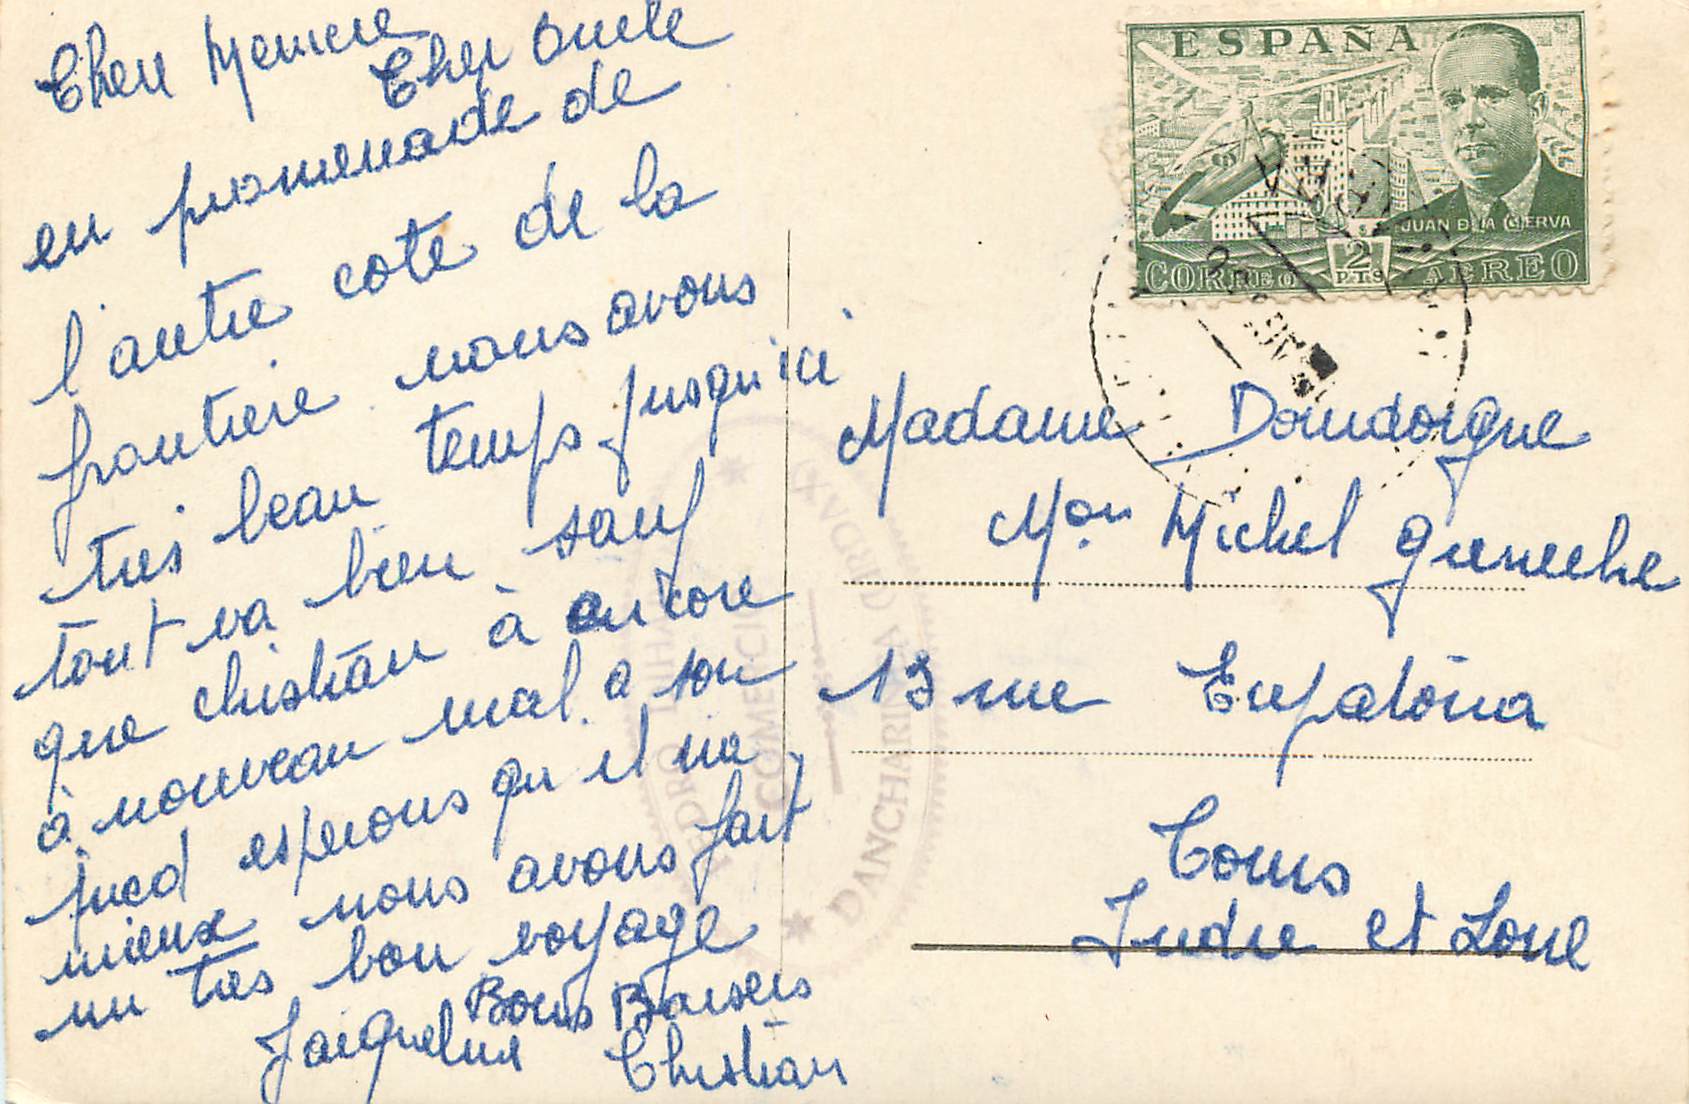 Chere Memere
Cher Oncle
en promenade de
l'autre cote de la
frontiere nous avons
tres beau temps jusqu'ici
tout va bien sauf
que christian à encore
à nouveau mal a son
pied esperons qu il ira
mieux nous avons fait
un tres bon voyage
Bons Baisers
Jacqueline Christian
ESPAÑA
JUAN DE LA CIERVA
2
PTS
CORREO AEREO
Madame Doudoigne
Mon Michel
13 rue Eupatoria
Tours
Indre et Loire
PEDRO
COMERCIO
DANCHARINEA (URDAX)